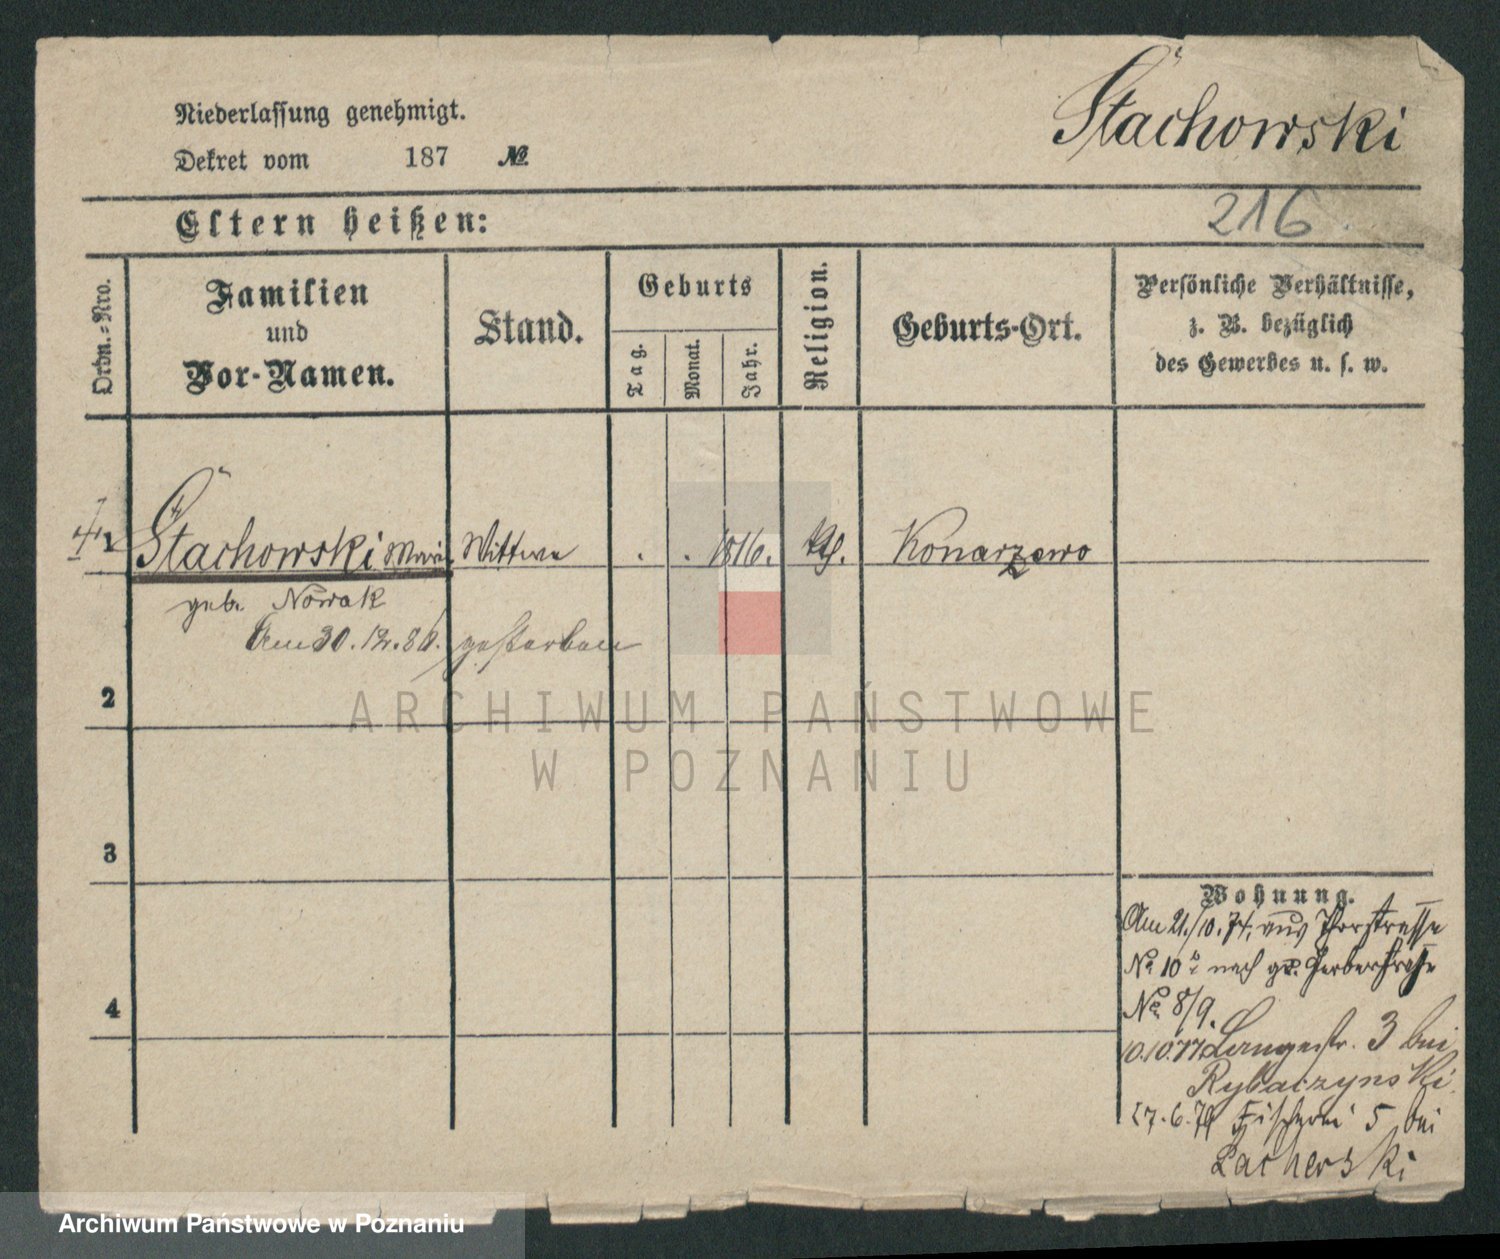 Stachowski
Niederlassung genehmigt.
Dekret vom 187 №
Eltern heißen:
216.
Ordn.-Nro.
Familien
und
Vor-Namen.
Stand.
Geburts
Tag.
Monat.
Jahr.
Religion.
Geburts-Ort.
Persönliche Verhältnisse,
z. B. bezüglich
des Gewerbes u. s. w.
1 Stachowski Marie Wittwe . . 1816. Konarzewo
geb. Nowak
Am 30.12.80. gestorben
2
3
4
Wohnung.
Am 21./10.74. aus Thorstrasse
No 10 nach gr. Gerberstraße
No 8/9.
10.10.77 Langestr. 3 bei
Rybaczynski
27.6.79 Fischerei 5 bei
Lachewski
ARCHIWUM PAŃSTWOWE
W POZNANIU
Archiwum Państwowe w Poznaniu